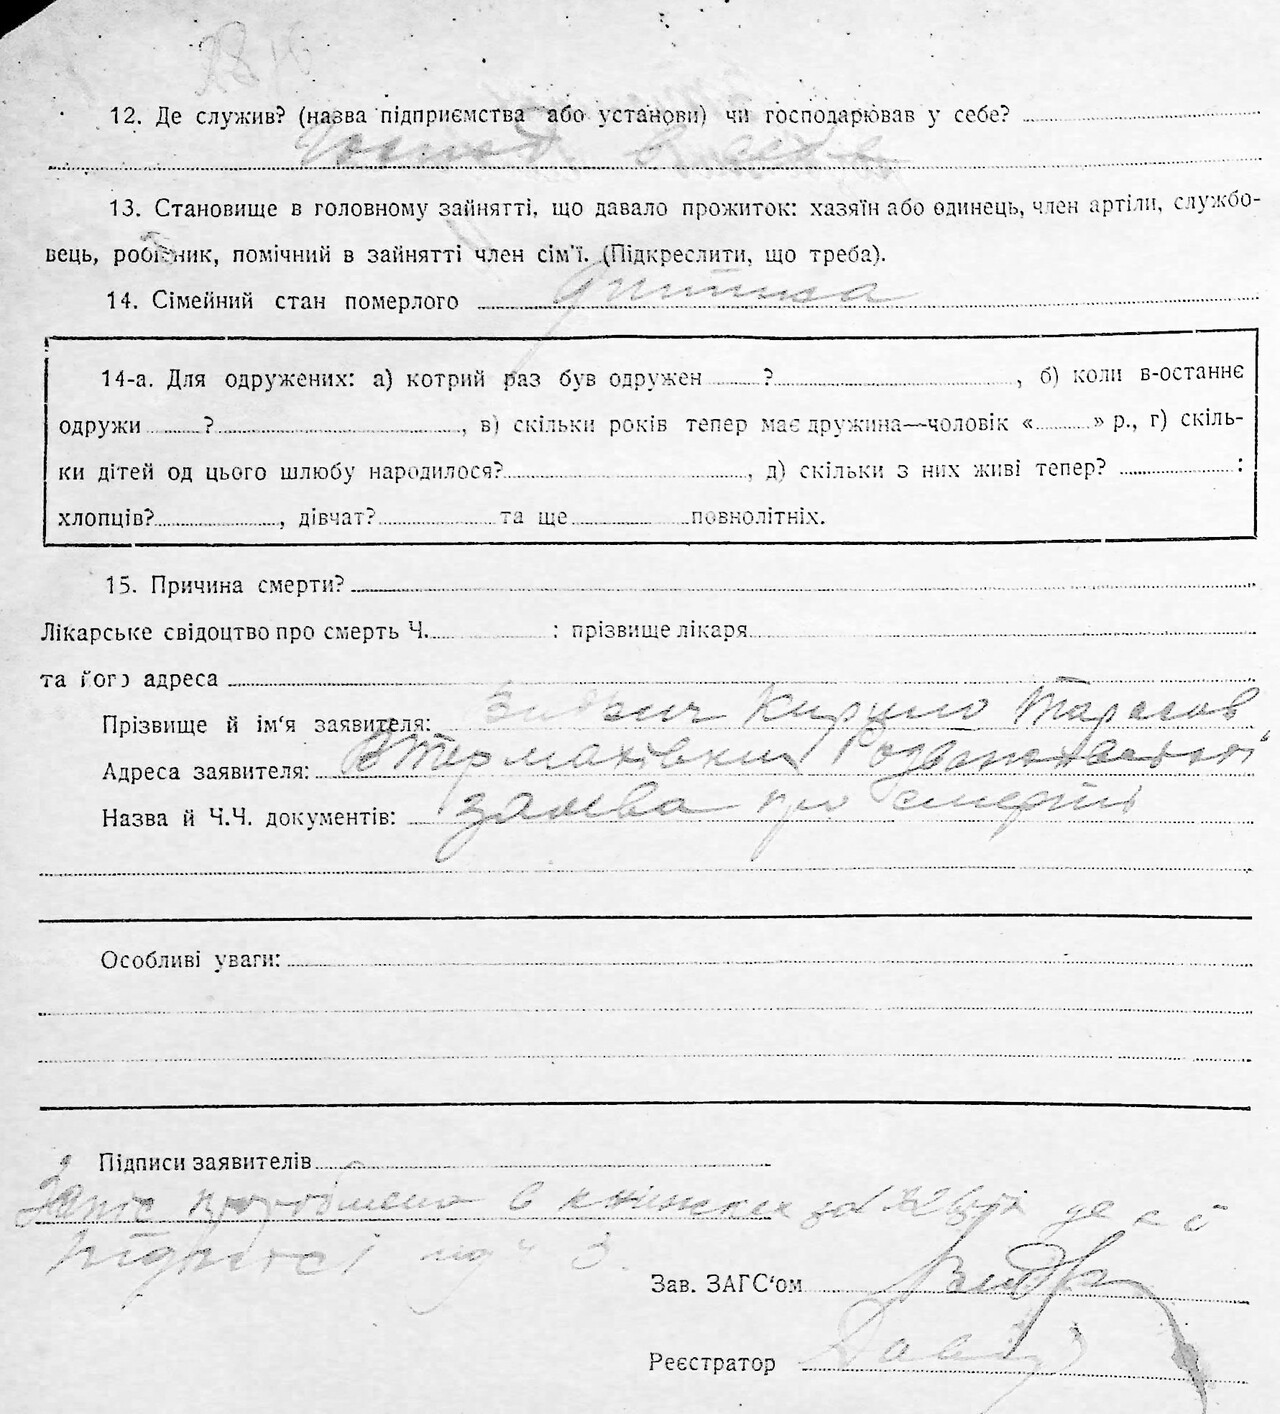 12. Де служив? (назва підприємства або установи) чи господарював у себе?
в себе
13. Становище в головному зайнятті, що давало прожиток: хазяїн або одинець, член артіли, службо-
вець, робітник, помічний в зайнятті член сім'ї. (Підкреслити, що треба).
14. Сімейний стан померлого дитина
14-а. Для одружених: а) котрий раз був одружен ? , б) коли в-останнє
одружи ? , в) скільки років тепер має дружина—чоловік « » р., г) скіль-
ки дітей од цього шлюбу народилося? , д) скільки з них живі тепер? :
хлопців? , дівчат? та ще повнолітніх.
15. Причина смерти?
Лікарське свідоцтво про смерть Ч. : прізвище лікаря
та його адреса
Прізвище й ім'я заявителя: Кирило Тарасов
Адреса заявителя:
Назва й Ч.Ч. документів: заява про смерть
Особливі уваги:
Підписи заявителів
Запис в книжках
підписі
Зав. ЗАГС'ом
Реєстратор